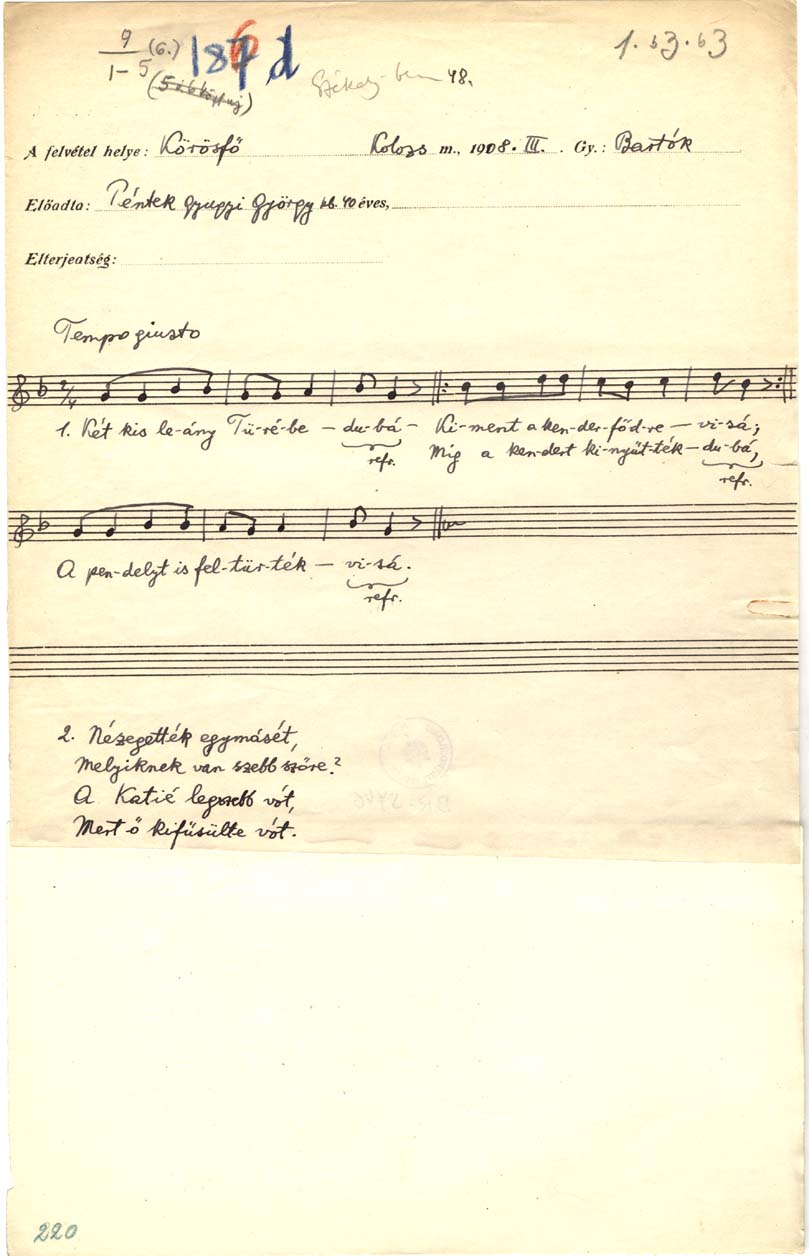 9 (6.) 186 d 1. b3. b3
1-5
48.
A felvétel helye: Körösfő Kolozs m., 1908. III. Gy.: Bartók
Előadta: Péntek Gyugyi György kb. 40 éves,
Elterjedtség:
Tempo giusto
2/4
1. Két kis le-ány Tü-ré-be — du-bá — Ki-ment a ken-der-főd-re — vi-sá;
refr. Míg a ken-dert ki-nyűt-ték — du-bá,
refr.
A pen-delyt is fel-tür-ték — vi-sá.
refr.
2. Nézegették egymásét,
Melyiknek van szebb szőre?
A Katié legszebb vót,
Mert ő kifüsülte vót.
220